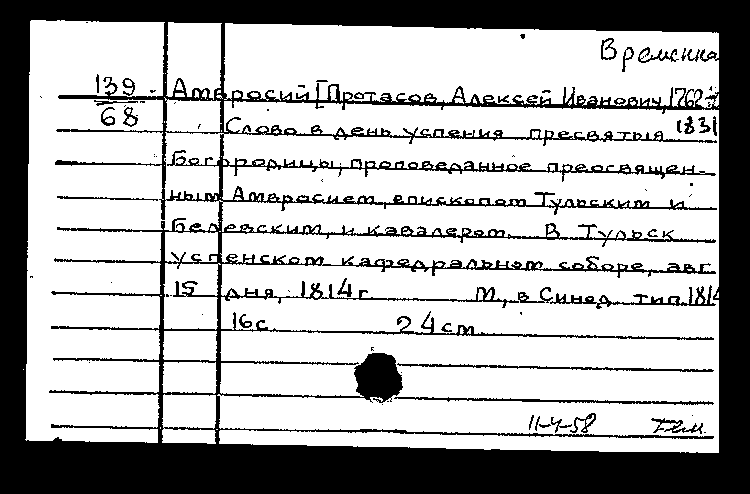 Временна
139 Амвросий [Протасов, Алексей Иванович, 1762-
68 Слово в день успения пресвятыя 1831
Богородицы, проповеданное преосвящен-
ным Амвросием, епископом Тульским и
Белевским, и кавалером. В Тульск
успенском кафедральном соборе, авг.
15 дня, 1814 г. М., в Синод. тип. 1814
16 с. 24 см.
11-4-58